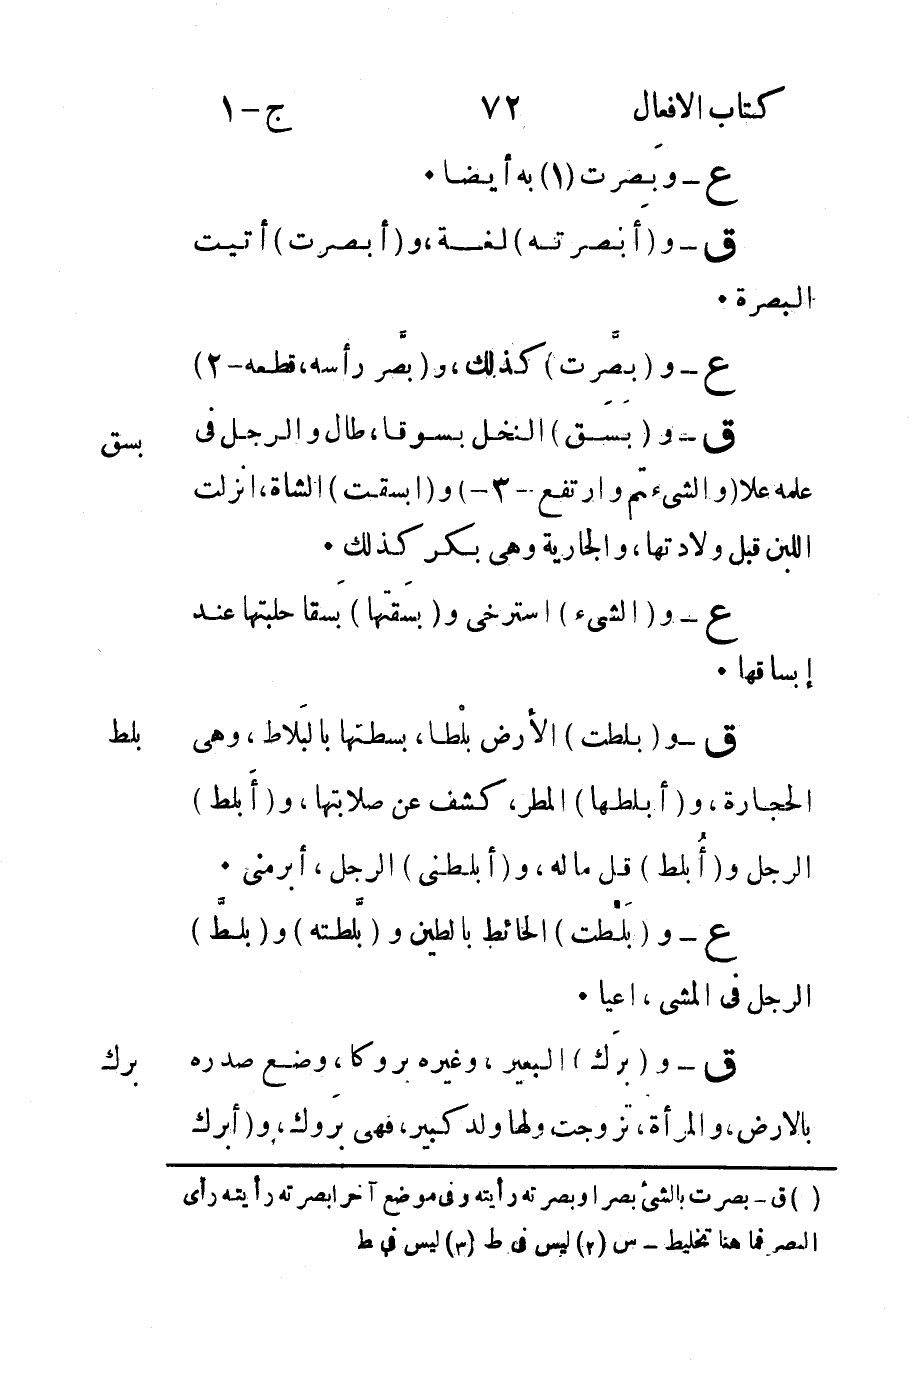 كتاب الافعال ٧٢ ج-١
ع - وبَصِرت (١) به أيضا •
ق - و (أبْصرته) لغة، و (أبصرت) أتيت
البصرة •
ع - و (بصَّرت) كذلك، و (بصَّر رأسه، قطعه-٢)
ق - و (بَسَق) النخل بسوقا، طال والرجل فى
علمه علا (والشىء تم وارتفع -٣-) و (ابسقت) الشاة، انزلت
اللبن قبل ولادتها، والجارية وهى بكر كذلك •
ع - و (الشىء) استرخى و (بسَقتها) بَسقا حلبتها عند
إبساقها •
ق - و (بلطت) الأرض بلْطا، بسطتها بالبَلاط، وهى
الحجارة، و (أبلطها) المطر، كشف عن صلابتها، و (أَبلط)
الرجل و (أُبلط) قل ماله، و (أبلطنى) الرجل، أبرمنى •
ع - و (بَلْطت) الحائط بالطين و (بلَّطته) و (بلَّط)
الرجل فى المشى، اعيا •
ق - و (برَك) البعير، وغيره بروكا، وضع صدره
بالارض، والمرأة، تزوجت ولها ولد كبير، فهى بَروك، و (أبرك
بسق
بلط
برك
( ) ق - بصرت بالشئ بصرا وبصرته رأيته وفى موضع آخر ابصرته رأيته رأى
البصر فما هنا تخليط - س (٢) ليس فى ط (٣) ليس في ط